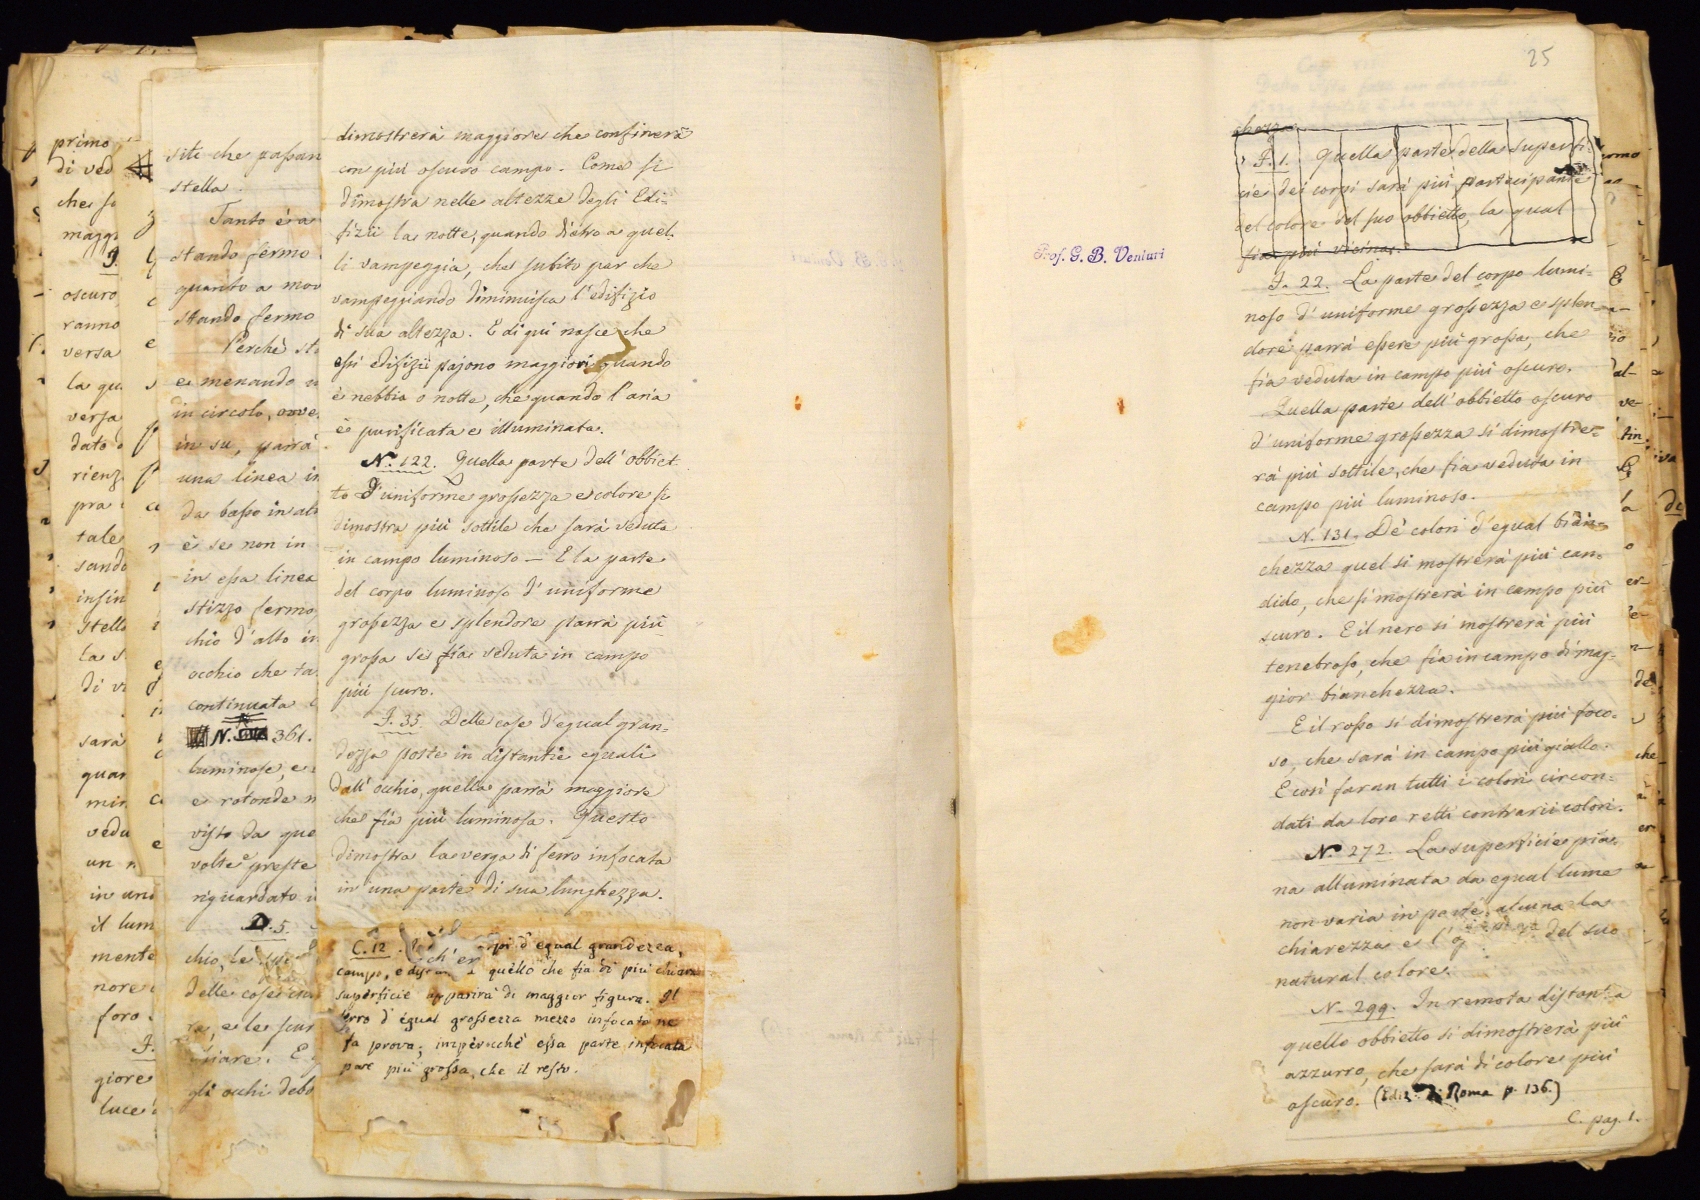 primo
di ved
che si
magg
oscuro
ranno
versa
la qu
versa
dato
rienz
pra
tale
sando
infin
stello
la s
di vi
sarà
quan
min
vedu
un n
in uni
il lum
mente
nore
foro
giore
luce
siti che passan
stella.
Tanto èra
stando fermo
quanto a mov
stando fermo
Perchè sta
e menando
in circolo, ovve
in su, parrà
una linea in
da basso in alt
è se non in
in essa linea
stizzo fermo
chio d'alto in
occhio che ta
continuata
N. 361.
luminose, e
e rotonde
visto da que
volte preste
riguardato i
D. 5.
chio, le
delle cose
ra, e le scur
chiare. E
gli occhi debo
dimostrerà maggiore che confinerà
con più oscuro campo. Come si
dimostra nelle altezze degli Edi-
fizii la notte, quando dietro a quel-
li vampeggia, che subito par che
vampeggiando diminuisca l'edifizio
di sua altezza. E di qui nasce che
essi edifizii pajono maggiori quando
è nebbia o notte, che quando l'aria
è purificata e illuminata.
N. 122. Quella parte dell'obbiet-
to d'uniforme grossezza e colore si
dimostra più sottile che sarà veduta
in campo luminoso — E la parte
del corpo luminoso d'uniforme
grossezza e splendore parrà più
grossa se fia veduta in campo
più scuro.
I. 35. Delle cose d'egual gran-
dezza poste in distantie equali
dall'occhio, quella parrà maggiore
che fia più luminosa. Questo
dimostra la verga di ferro infocata
in una parte di sua lunghezza.
C. 12. d'equal grandezza,
campo, e quello che fia di più chiara
superficie apparirà di maggior figura. Il
ferro d'egual grossezza mezzo infocato ne
fa prova; imperocchè essa parte infocata
pare più grossa, che il resto.
25
Prof. G. B. Venturi
chezza
I. 1. Quella parte della superfi-
cie dei corpi sarà più partecipante
del colore del suo obbietto, la qual
fia più vicina.
I. 22. La parte del corpo lumi-
noso d'uniforme grossezza e splen-
dore parrà essere più grossa, che
fia veduta in campo più oscuro.
Quella parte dell'obbietto oscuro
d'uniforme grossezza si dimostre-
rà più sottile, che fia veduta in
campo più luminoso.
N. 131. De' colori d'egual bian-
chezza quel si mostrerà più can-
dido, che si mostrerà in campo più
scuro. E il nero si mostrerà più
tenebroso, che fia in campo di mag-
gior bianchezza.
E il rosso si dimostrerà più foco-
so, che sarà in campo più giallo.
E così faran tutti i colori circon-
dati da loro retti contrarii colori.
N. 272. La superficie pia-
na alluminata da egual lume
non varia in parte alcuna la
chiarezza e l' del suo
natural colore.
N. 299. In remota distantia
quello obbietto si dimostrerà più
azzurro, che sarà di colore più
oscuro. (Ediz. di Roma p. 136.)
C. pag. 1.